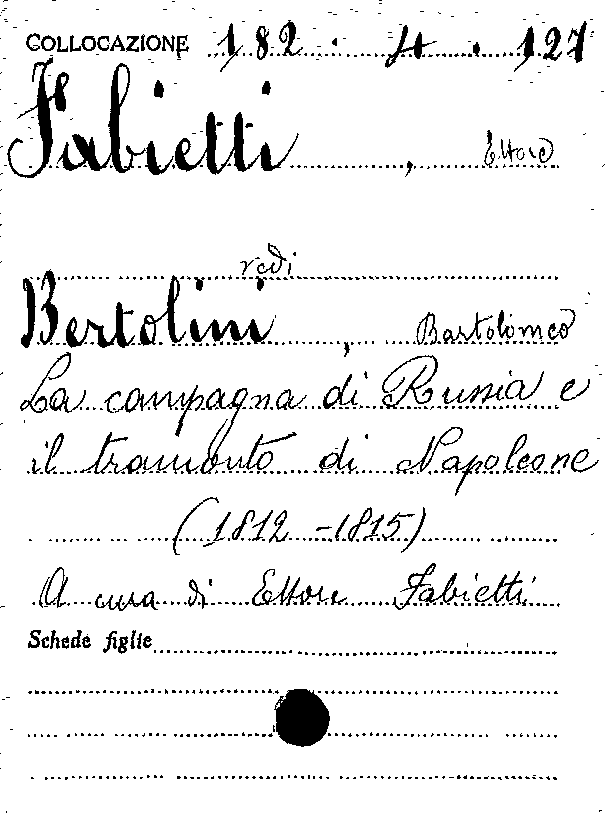 COLLOCAZIONE 182.4.127
Fabietti, Ettore
vedi
Bertolini, Bartolomeo
La campagna di Russia e
il tramonto di Napoleone
(1812-1815)
A cura di Ettore Fabietti
Schede figlie